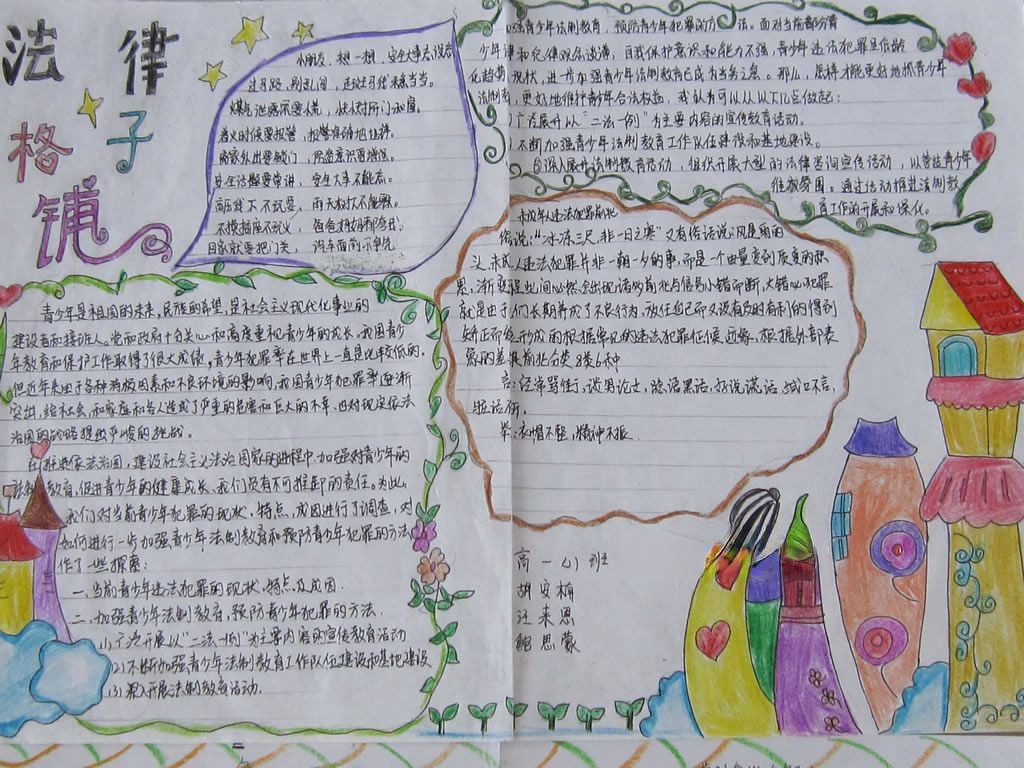 法律
格子
铺
小朋友,想一想,安全大事
过马路,别乱闯,
煤气泄露不要慌,
着火时候要报警,报警准确地址详。
安全话题要常讲,安全大事不能忘。
高压线下不玩耍,雨天
不摸插座不玩火,
加强青少年法制教育,预防青少年犯罪的方法。面对当前部分青
少年法律和纪律观念淡薄,自我保护意识和能力不强,青少年违法犯罪呈低龄
化趋势现状,进一步加强青少年法制教育已成为当务之急。那么,怎样才能更好地抓青少年
法制教,更好地维护青少年合法权益,我认为可以从以下几点做起:
广泛展开以“二法一例”为主要内容的宣传教育活动。
不断加强青少年法制教育工作队伍建设和基地建设。
深入展开法制教育活动,组织开展大型的法律咨询宣传活动,以营造青少年
维权氛围。通过活动推进法制教
育工作的开展和深化。
未成年人违法犯罪前兆
俗话说:“冰冻三尺,非一日之寒”又有俗话说:风是雨的
头,未成人违法犯罪并非一朝一夕的事,而是一个由量变到质变的积
累,渐变
就是由于他们长期养成了不良行为,放任自己而又没有及时有制约的得到
矫正而终形成的根据常见的违法犯罪征候,迹象,根据外部表
象的差异前兆分类3类6种
言:经常骂街,谈男论女,流话黑话,好说谎话,
脏话
举:衣帽不整,精神不振.
青少年是祖国的未来,民族的希望,是社会主义现代化事业的
建设者和接班人。党和政府十分关心和高度重视青少年的成长。我国青少
年教育和保护工作取得了很大成绩,青少年犯罪率在世界上一直是比较低的。
但近年来由于各种消极因素和不良环境的影响,我国青少年犯罪率逐渐
突出,给社会,和家庭和各人造成了严重的危害和巨大的不幸,也对现实依法
治国的战略提出严峻的挑战。
在推进依法治国,建设社会主义法治国家的进程中,加强对青少年的
法制教育,促进青少年的健康成长,我们负有不可推卸的责任。为此,
我们对当前青少年犯罪的现状,特点,成因进行了调查,对
如何进行一步加强青少年法制教育和预防青少年犯罪的方法
作了一些探索:
一、当前青少年违法犯罪的现状,特点,及成因.
二、加强青少年法制教育,预防青少年犯罪的方法.
(1)广泛开展以“二法一例”为主要内容的宣传教育活动
(2)不断加强青少年法制教育工作队伍建设和基地建设
(3)深入开展法制教育活动.
高一(1)班
胡安楠
汪来恩
鲍思蒙